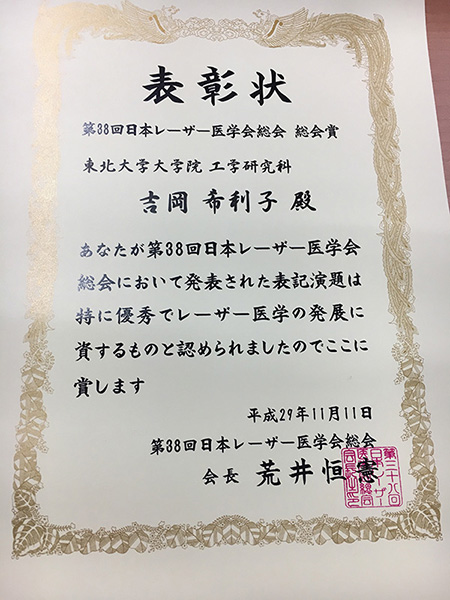 表彰状
第38回日本レーザー医学会総会 総会賞
東北大学大学院 工学研究科
吉岡 希利子 殿
あなたが第38回日本レーザー医学会
総会において発表された表記演題は
特に優秀でレーザー医学の発展に
資するものと認められましたのでここに
賞します
平成29年11月11日
第38回日本レーザー医学会総会
会長 荒井恒憲
第三十八回
日本レーザー
医学会総会
会長之印